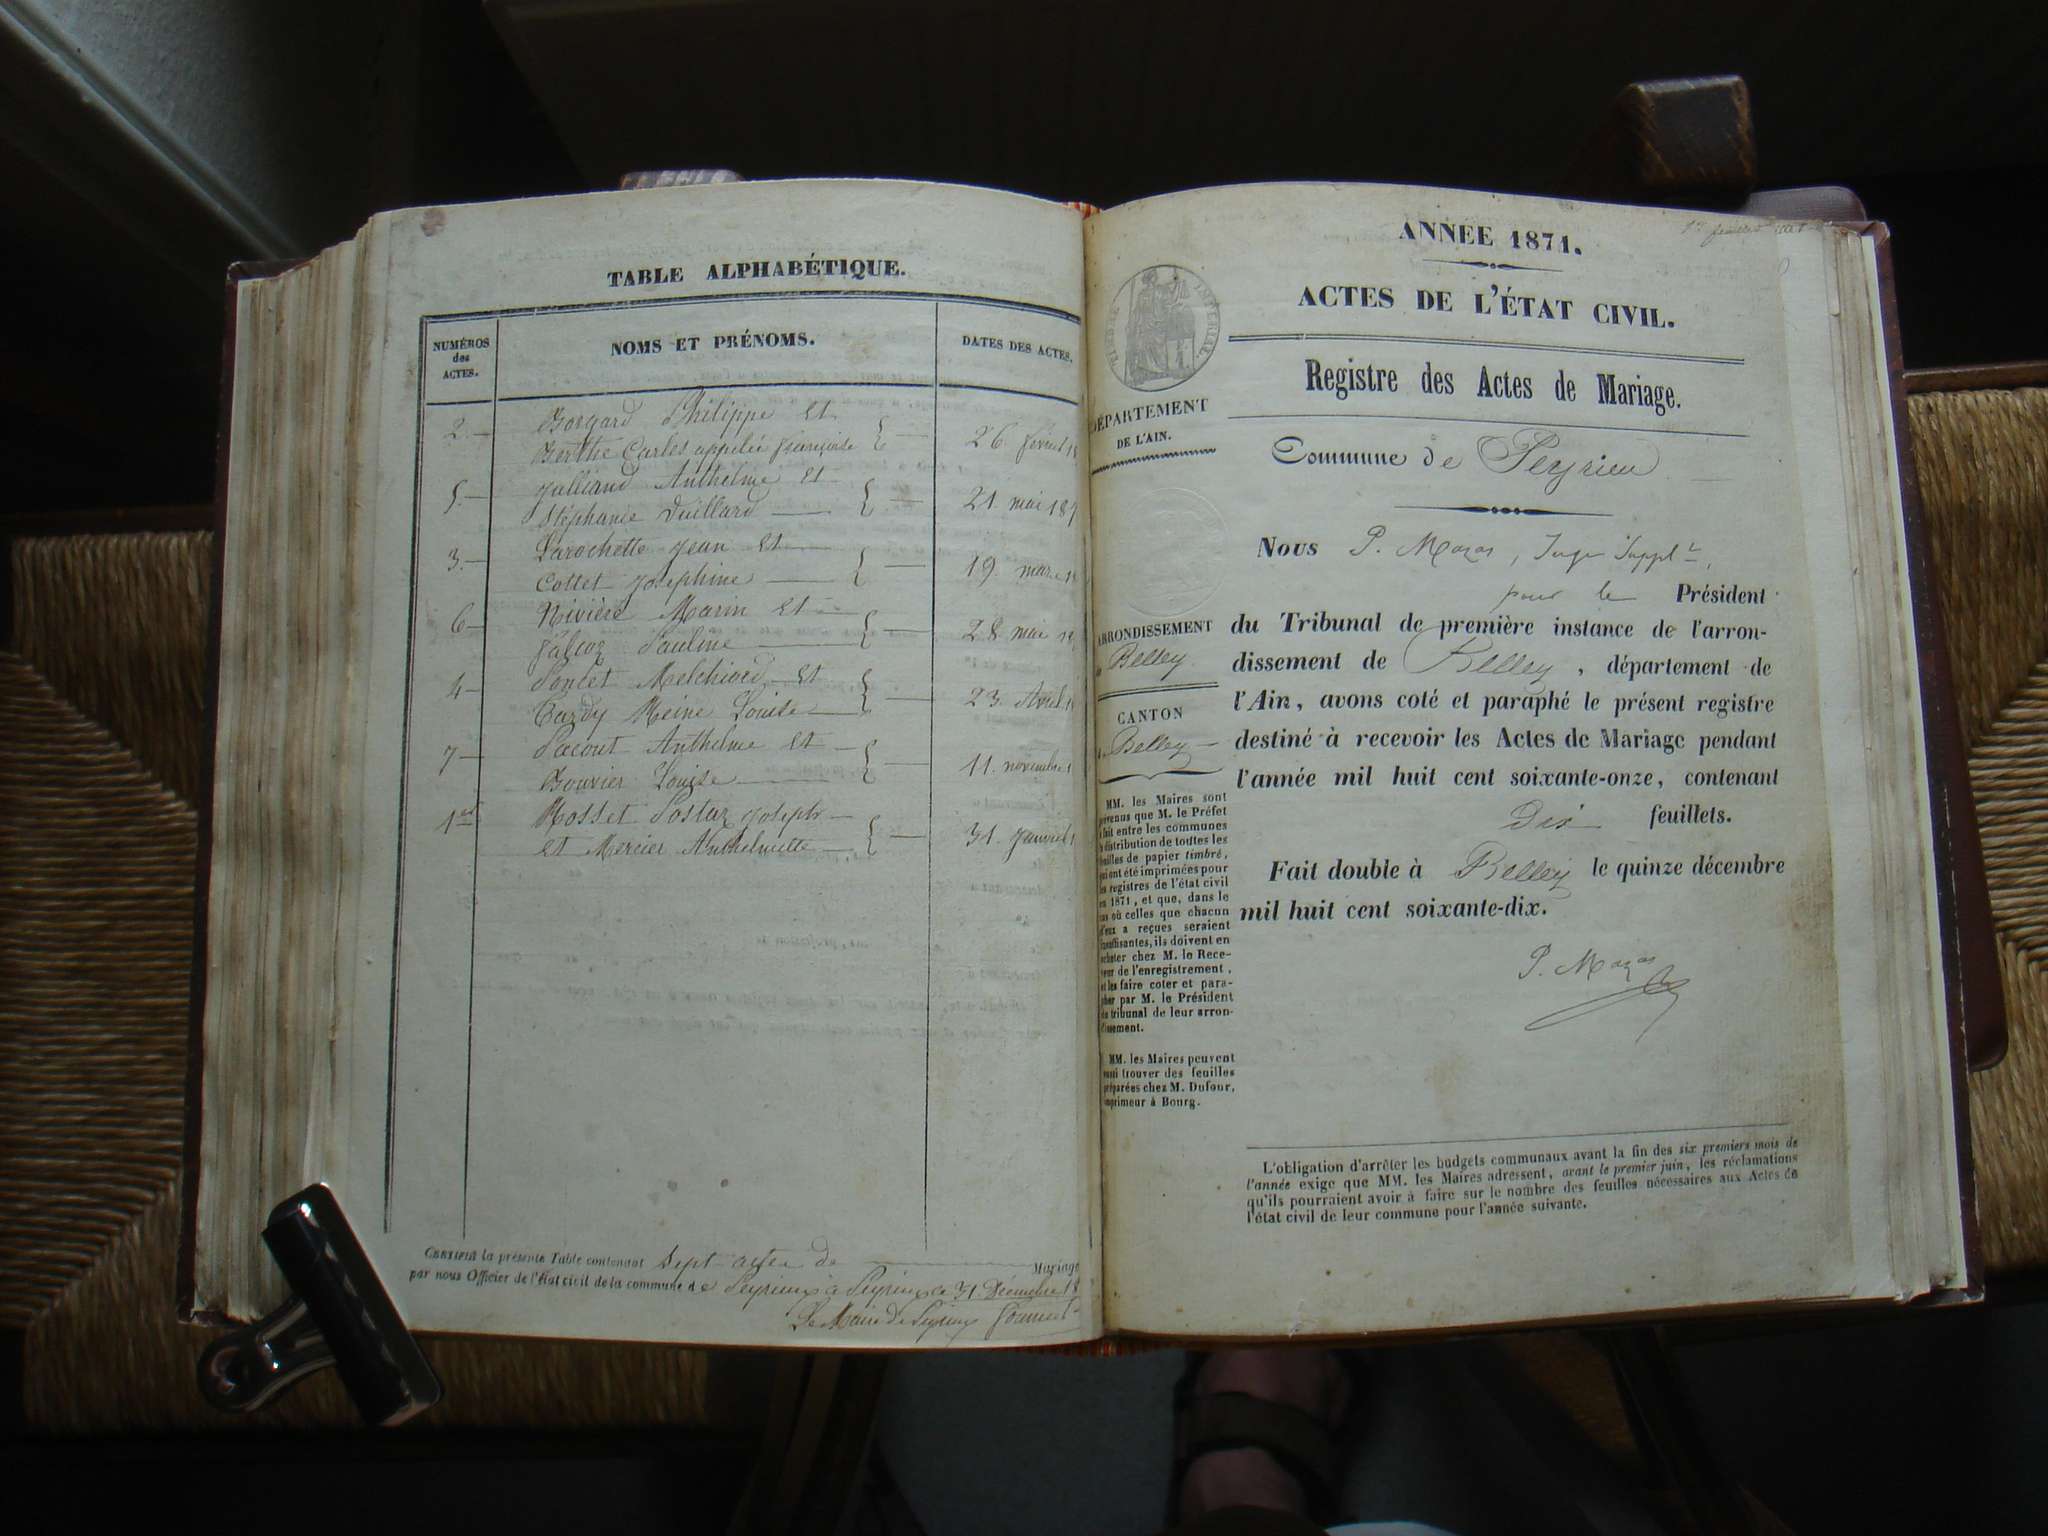 TABLE ALPHABÉTIQUE.
NUMÉROS des ACTES.
NOMS ET PRÉNOMS.
DATES DES ACTES.
2. Borgard Philippe et
Berthe Carles appelée françoise 26 février 18
5. Julliand Anthelme et
Stéphanie Duillard 21 mai 187
3. Larochette Jean et
Cottet Joséphine 19 mars 18
6 Rivière Marin et
Falcoz Pauline 28 mai 18
4 Poncet Melchiord et
Bardy Reine Louise 23 Avril 1
7 Pacout Anthelme et
Bouvier Louise 11 novembre 1
1er Rosset Postaz Joseph
et Mercier Anthelmette 31 Janvier 1
CERTIFIÉ la présente Table contenant sept actes de Mariage
par nous Officier de l'état civil de la commune de Peyrieux à Peyrieux ce 31 Décembre 18
Le Maire de Peyrieux
ANNÉE 1871.
ACTES DE L'ÉTAT CIVIL.
TIMBRE IMPÉRIAL.
Registre des Actes de Mariage.
DÉPARTEMENT
DE L'AIN.
Commune de Peyrieu
Nous P. Mazas, Juge Supplt,
pour le Président
du Tribunal de première instance de l'arron-
dissement de Belley, département de
l'Ain, avons coté et paraphé le présent registre
destiné à recevoir les Actes de Mariage pendant
l'année mil huit cent soixante-onze, contenant
Dix feuillets.
Fait double à Belley le quinze décembre
mil huit cent soixante-dix.
P. Mazas
ARRONDISSEMENT
Belley
CANTON
Belley
MM. les Maires sont
prévenus que M. le Préfet
fait entre les communes
la distribution de toutes les
feuilles de papier timbré,
qui ont été imprimées pour
les registres de l'état civil
en 1871, et que, dans le
cas où celles que chacun
d'eux a reçues seraient
insuffisantes, ils doivent en
acheter chez M. le Rece-
veur de l'enregistrement,
et les faire coter et para-
pher par M. le Président
du tribunal de leur arron-
dissement.
MM. les Maires peuvent
aussi trouver des feuilles
préparées chez M. Dufour,
imprimeur à Bourg.
L'obligation d'arrêter les budgets communaux avant la fin des six premiers mois de
l'année exige que MM. les Maires adressent, avant le premier juin, les réclamations
qu'ils pourraient avoir à faire sur le nombre des feuilles nécessaires aux Actes de
l'état civil de leur commune pour l'année suivante.